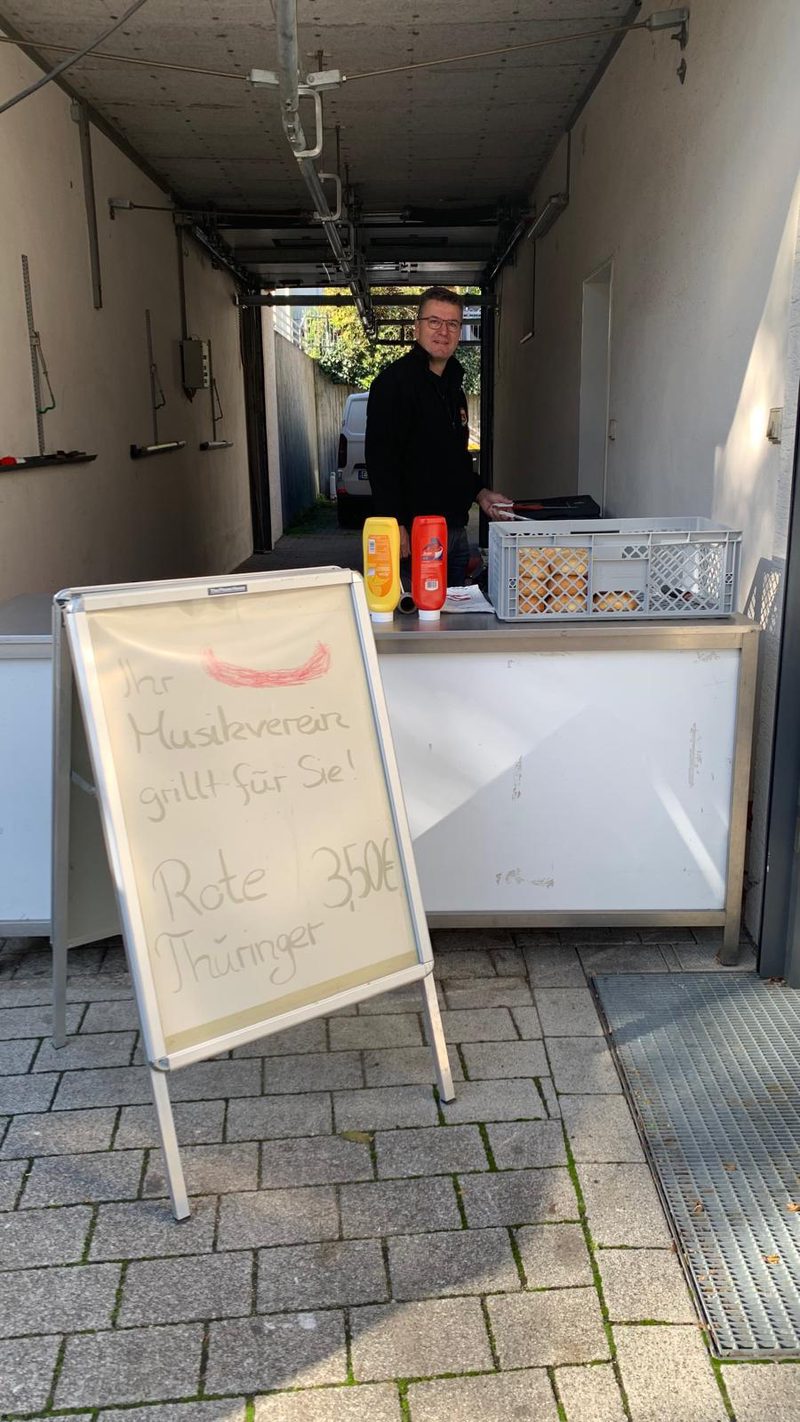 Ihr
Musikverein
grillt für Sie!
Rote 3,50€
Thüringer